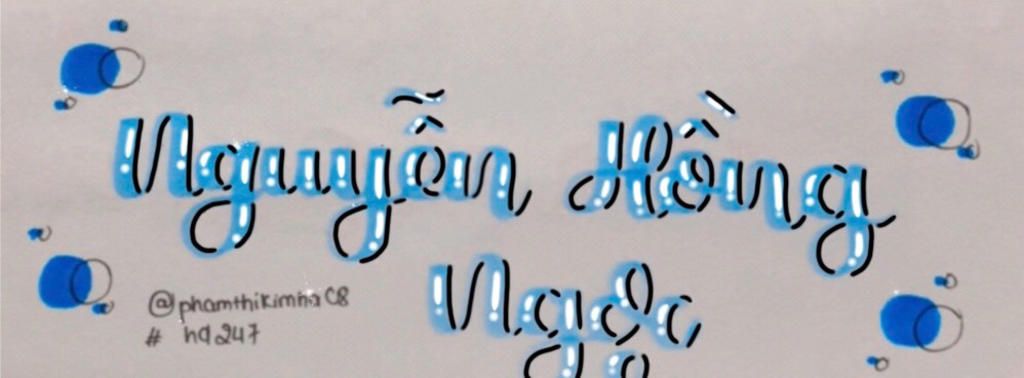 Nguyễn Hồng
Ngọc
@phamthikimhaC8
# ha247